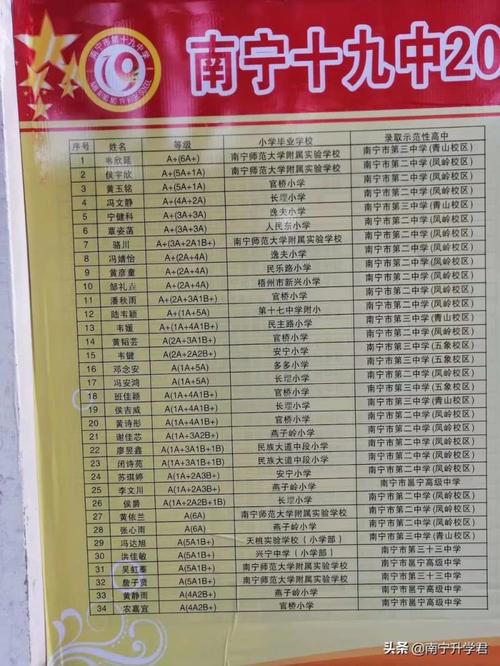 南宁市第十九中学
南宁十九中20
序号 姓名 等级 小学毕业学校 录取示范性高中
1 韦欣延 A+(6A+) 南宁师范大学附属实验学校 南宁市第三中学(青山校区)
2 侯宇欣 A+(5A+1A) 南宁师范大学附属实验学校 南宁市第二中学(凤岭校区)
3 黄玉铭 A+(5A+1A) 官桥小学 南宁市第二中学(凤岭校区)
4 冯文静 A+(4A+2A) 长堽小学 南宁市第二中学(凤岭校区)
5 宁健科 A+(3A+3A) 逸夫小学 南宁市第三中学(青山校区)
6 覃姿菡 A+(3A+3A) 人民东小学 南宁市第二中学(凤岭校区)
7 骆川 A+(3A+2A1B+) 南宁师范大学附属实验学校 南宁市第二中学(凤岭校区)
8 冯婧怡 A+(2A+4A) 逸夫小学 南宁市第二中学(凤岭校区)
9 黄彦童 A+(2A+4A) 民乐路小学 南宁市第二中学(凤岭校区)
10 邹礼 A+(2A+4A) 梧州市新兴小学 南宁市第二中学(凤岭校区)
11 潘秋雨 A+(2A+3A1B+) 官桥小学 南宁市第二中学(凤岭校区)
12 陆韦颖 A+(1A+5A) 第十七中学附小 南宁市第三中学(青山校区)
13 韦媛 A+(1A+4A1B+) 民主路小学 南宁市第二中学(凤岭校区)
14 黄韬芸 A(2A+3A1B+) 官桥小学 南宁市第三中学(五象校区)
15 韦键 A(2A+2A2B+) 安宁小学 南宁市第三中学(五象校区)
16 邓念安 A(1A+5A) 多多小学 南宁市第二中学(凤岭校区)
17 冯安鸿 A(1A+5A) 长堽小学 南宁市第三中学(五象校区)
18 班佳颖 A(1A+4A1B+) 官桥小学 南宁市第二中学(凤岭校区)
19 侯吉威 A(1A+4A1B+) 长堽小学 南宁市第三中学(青山校区)
20 黄诗彤 A(1A+4A1B+) 官桥小学 南宁市第二中学(凤岭校区)
21 谢佳芯 A(1A+3A2B+) 燕子岭小学 南宁市第二中学(凤岭校区)
22 廖昱鑫 A(1A+3A1B+1B) 民族大道中段小学 南宁市第二中学(凤岭校区)
23 闭诗苑 A(1A+3A1B+1B) 民族大道中段小学 南宁市第二中学(凤岭校区)
24 苏琪婷 A(1A+2A3B+) 安宁小学 南宁市第二中学(凤岭校区)
25 李文川 A(1A+2A3B+) 燕子岭小学 南宁市邕宁高级中学
26 侯爵 A(1A+2A2B+1B) 长堽小学 南宁市第二中学(凤岭校区)
27 黄依兰 A(6A) 南宁师范大学附属实验学校 南宁市第二中学(凤岭校区)
28 张心雨 A(6A) 燕子岭小学 南宁市第二中学(凤岭校区)
29 冯达旭 A(5A1B+) 天桃实验学校(小学部) 南宁市第三中学(青山校区)
30 洪佳敏 A(5A1B+) 兴宁中学(小学部) 南宁市第三十三中学
31 吴虹蓁 A(5A1B+) 南宁师范大学附属实验学校 南宁市邕宁高级中学
32 詹子贤 A(5A1B+) 南宁师范大学附属实验学校 南宁市第三十三中学
33 黄静雨 A(4A2B+) 燕子岭小学 南宁市邕宁高级中学
34 农嘉宜 A(4A2B+) 官桥小学 南宁市邕宁高级中学
头条 @南宁升学君